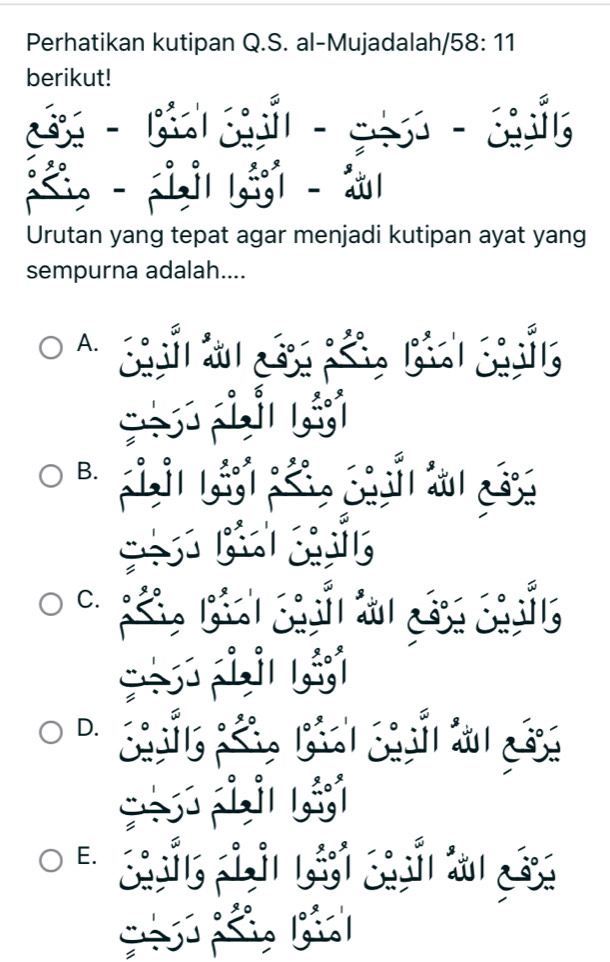 Perhatikan kutipan Q.S. al-Mujadalah/58: 11
berikut!
وَالَّذِيْنَ - دَرَجٰتٍ - الَّذِيْنَ اٰمَنُوْا - يَرْفَعِ
اللّٰهُ - اُوْتُوا الْعِلْمَ - مِنْكُمْ
Urutan yang tepat agar menjadi kutipan ayat yang
sempurna adalah....
A. وَالَّذِيْنَ اٰمَنُوْا مِنْكُمْ يَرْفَعِ اللّٰهُ الَّذِيْنَ
اُوْتُوا الْعِلْمَ دَرَجٰتٍ
B. يَرْفَعِ اللّٰهُ الَّذِيْنَ مِنْكُمْ اُوْتُوا الْعِلْمَ
وَالَّذِيْنَ اٰمَنُوْا دَرَجٰتٍ
C. وَالَّذِيْنَ يَرْفَعِ اللّٰهُ الَّذِيْنَ اٰمَنُوْا مِنْكُمْ
اُوْتُوا الْعِلْمَ دَرَجٰتٍ
D. يَرْفَعِ اللّٰهُ الَّذِيْنَ اٰمَنُوْا مِنْكُمْ وَالَّذِيْنَ
اُوْتُوا الْعِلْمَ دَرَجٰتٍ
E. يَرْفَعِ اللّٰهُ الَّذِيْنَ اُوْتُوا الْعِلْمَ وَالَّذِيْنَ
اٰمَنُوْا مِنْكُمْ دَرَجٰتٍ